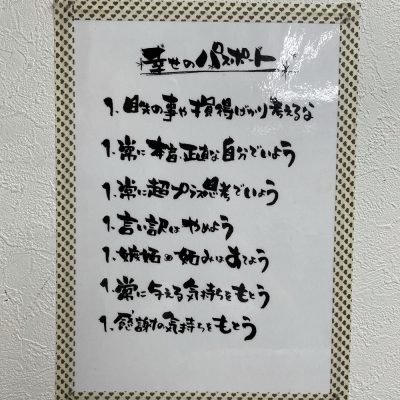 幸せのパスポート
1、目先の事や損得ばかり考えるな
1、常に本音、正直な自分でいよう
1、常に超プラス思考でいよう
1、言い訳はやめよう
1、嫉妬や妬みはすてよう
1、常に与える気持ちをもとう
1、感謝の気持ちをもとう